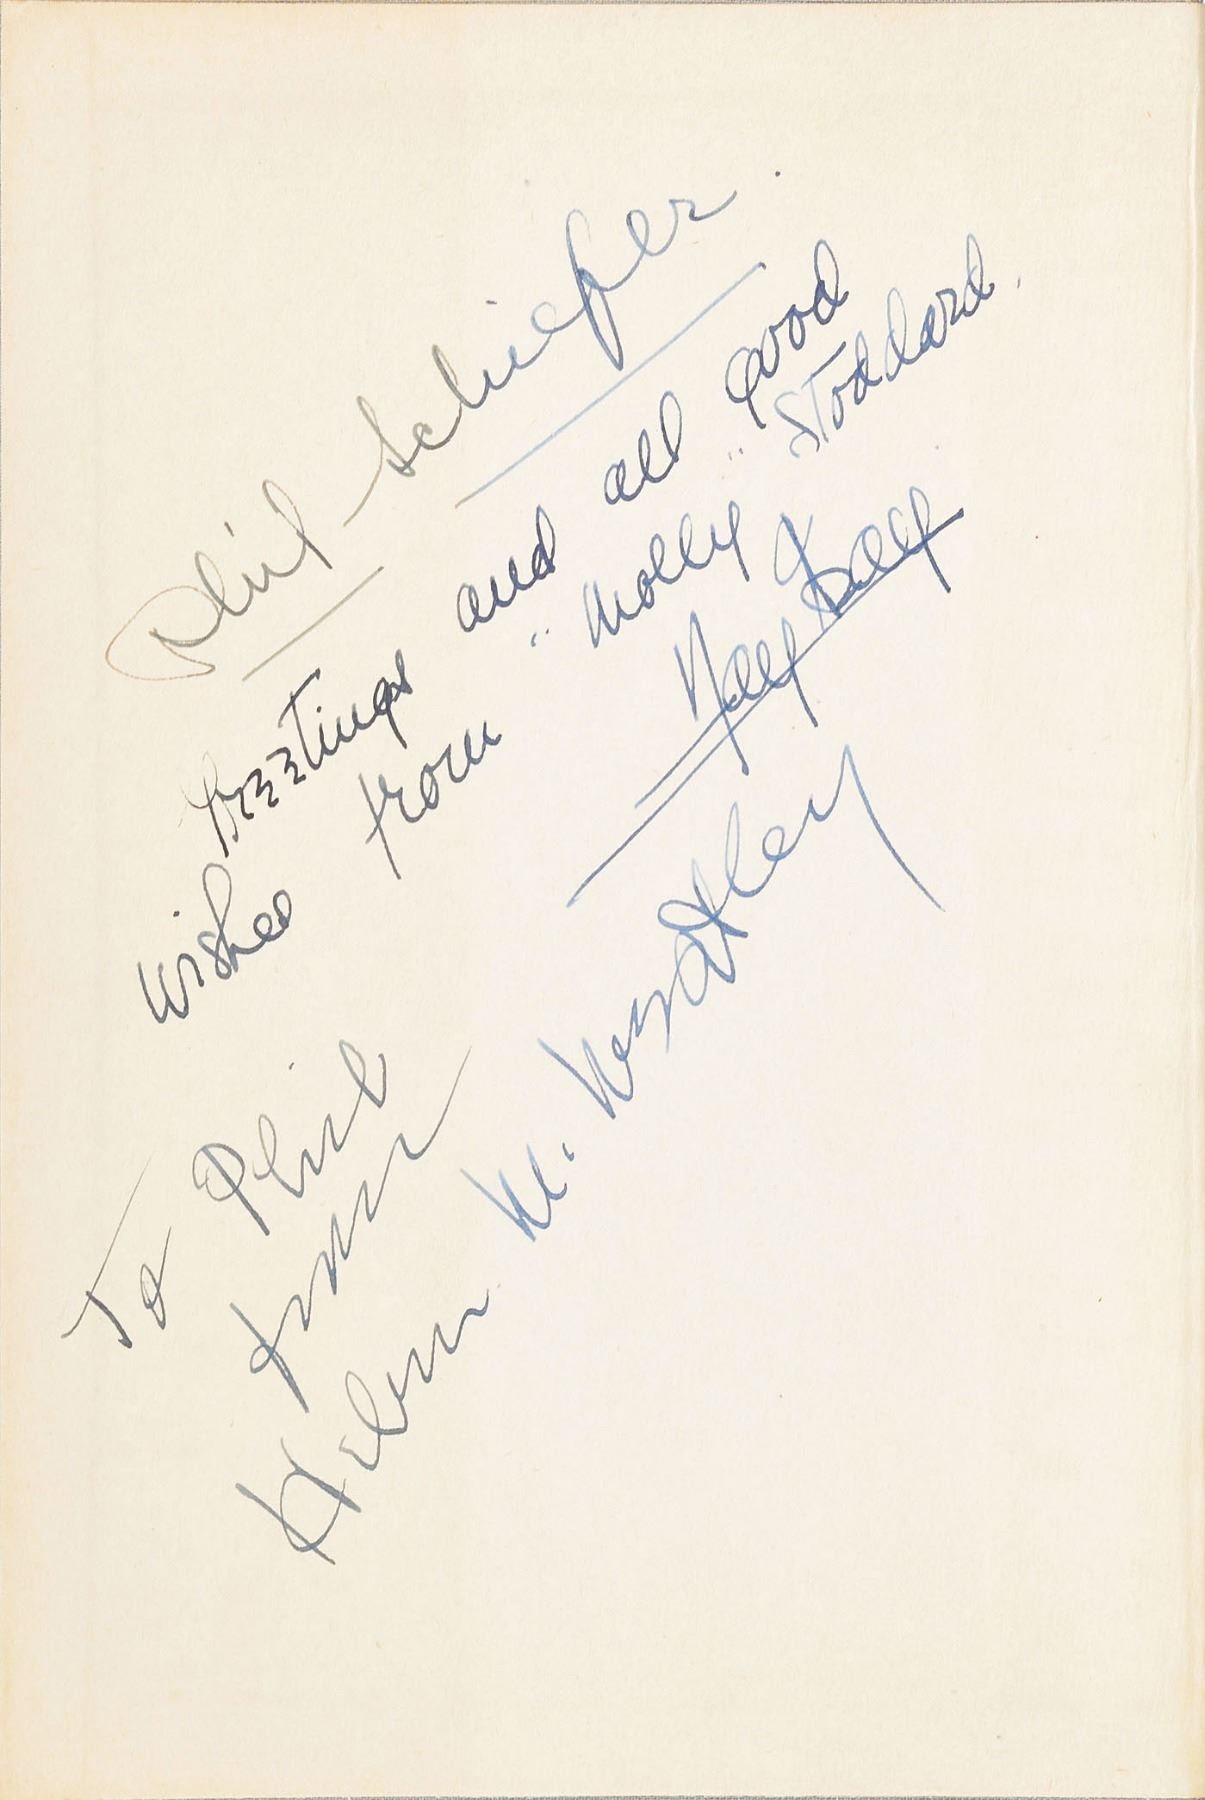 Phil Schiefer
Greetings and all good
wishes from "Molly Stoddard.
To Phil
from
Helen M.